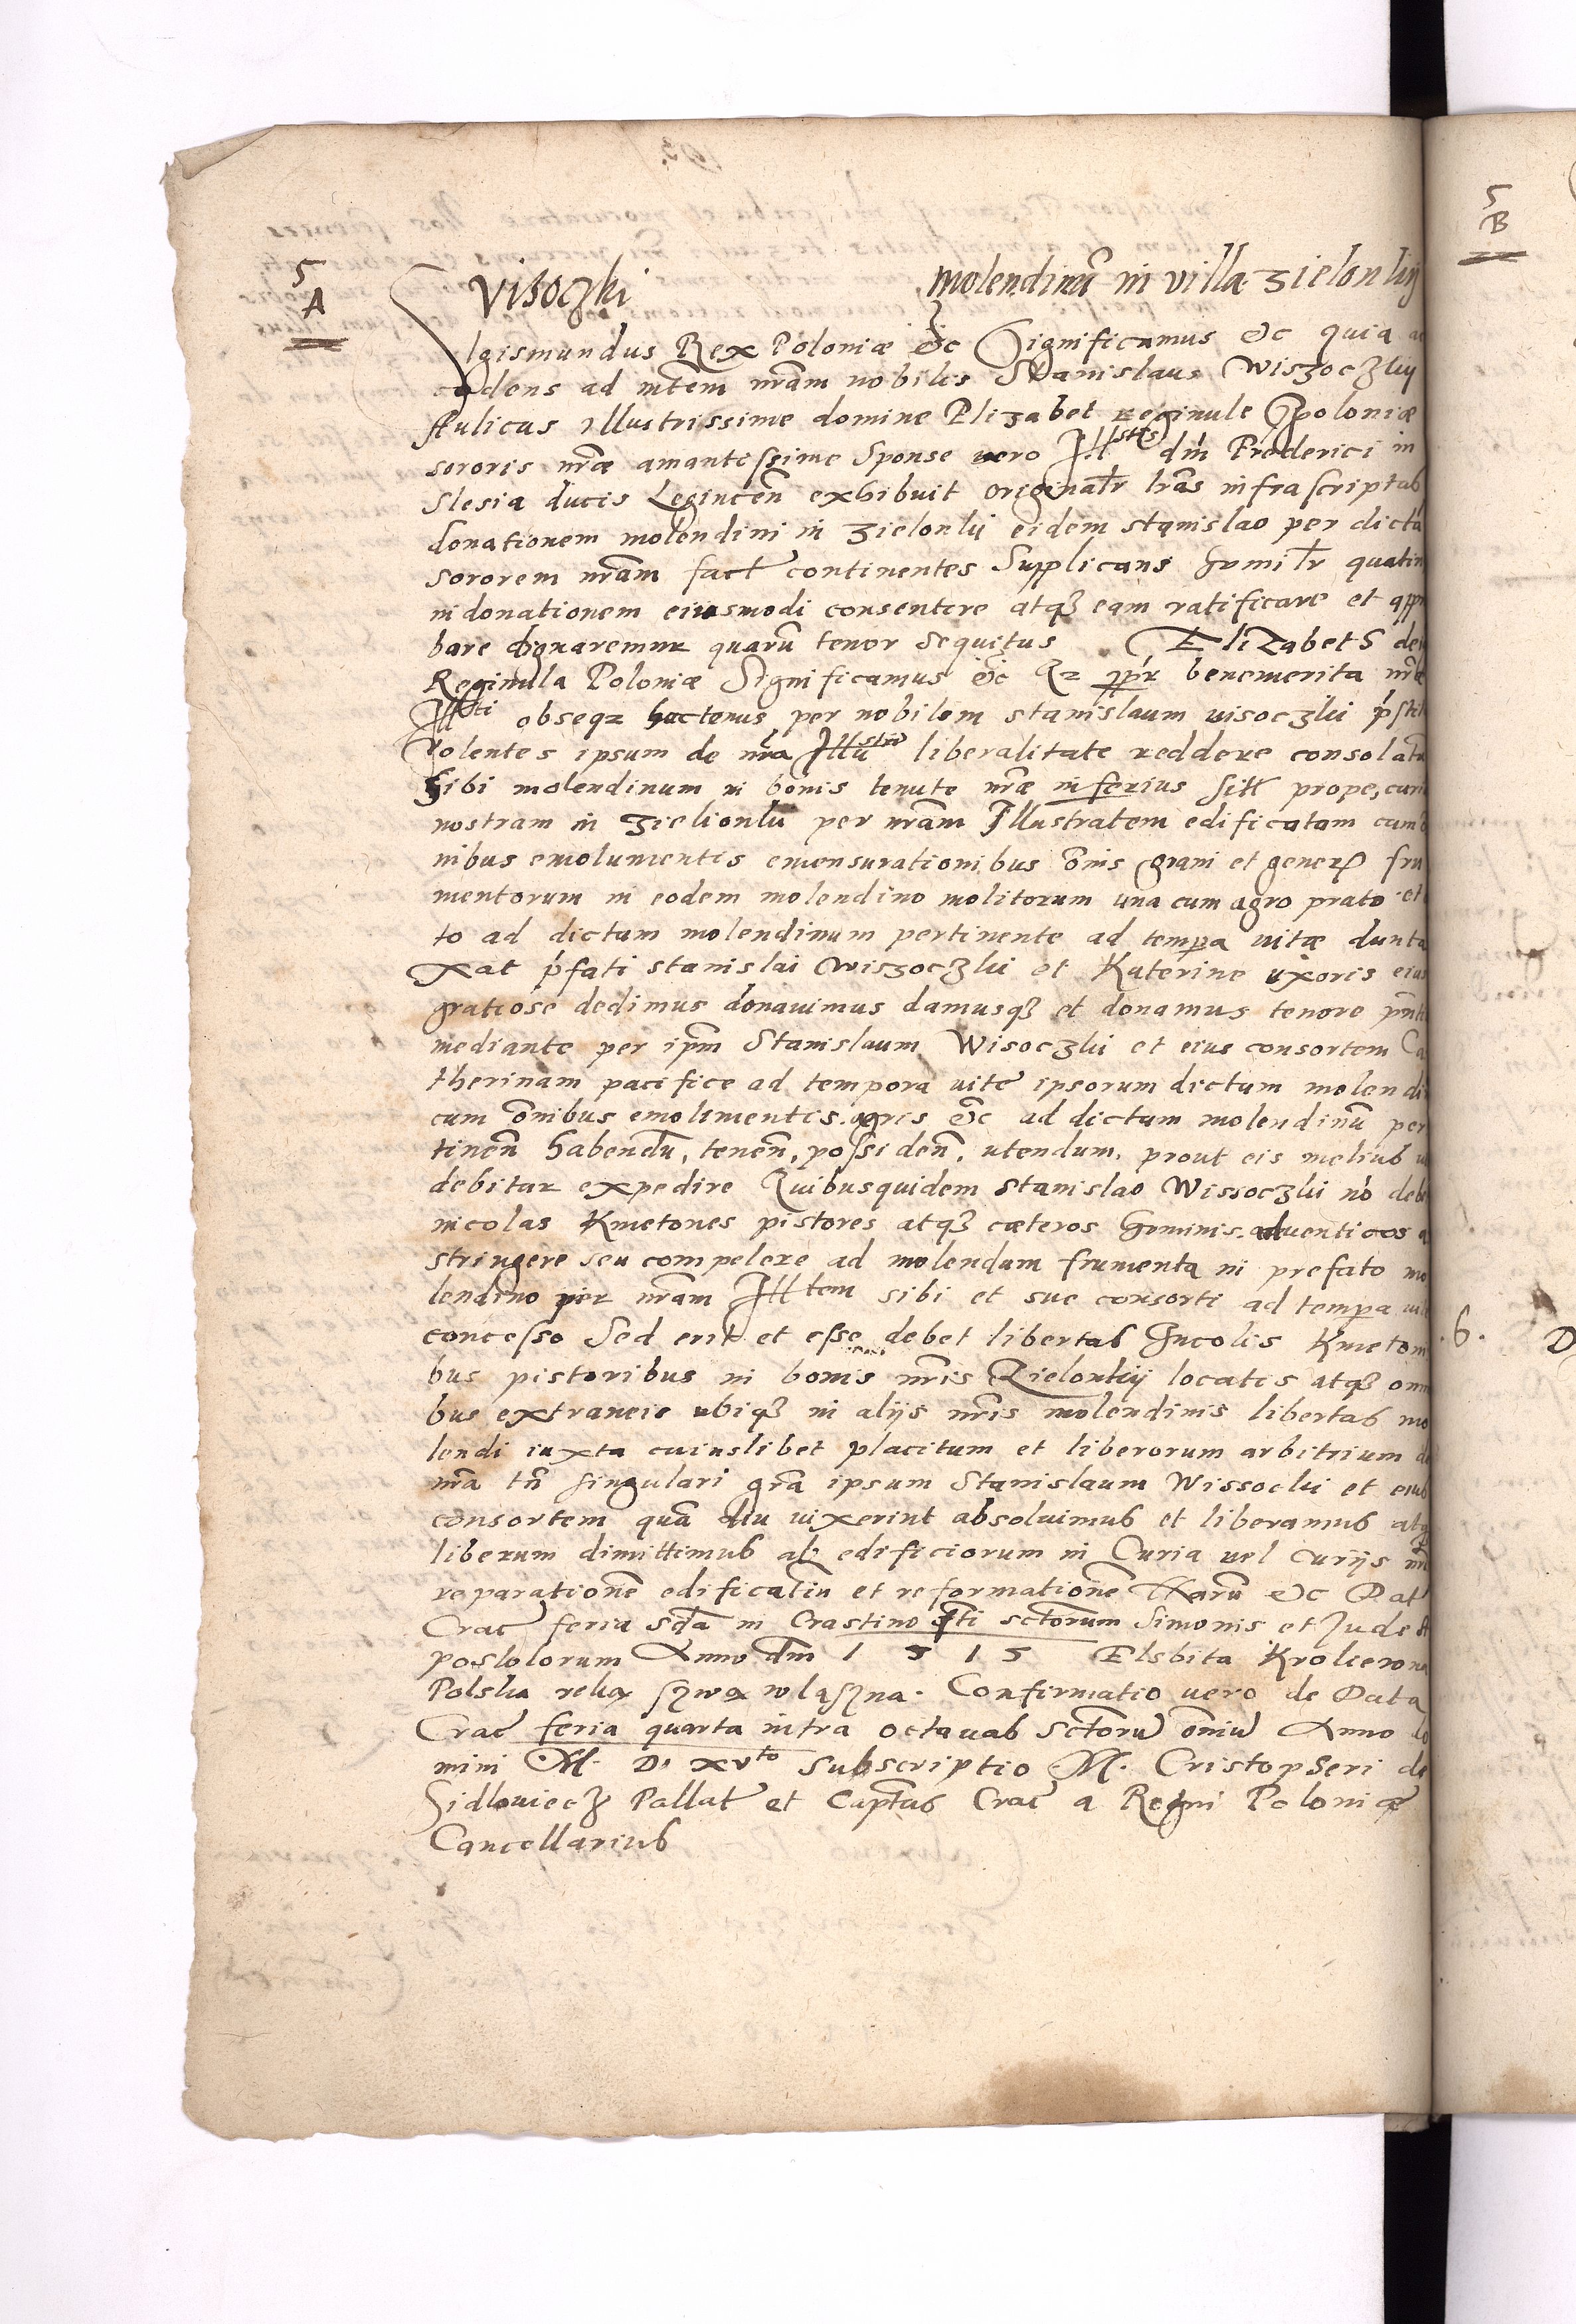 5
A
Visoczki molendinū in villa Zielonkij
Sigismundus Rex Poloniæ &c Significamus &c quia ac
cedens ad mtem nrām nobilis Stanislaus Wiszoczkij
Aulicus Illustrissime domine Elizabet reginule Poloniæ
sororis nræ amantissime Sponse uero Illstris dni Frederici in
Slesia ducis Legnicen exhibuit originalr lras infrascriptas
donationem molendini in Zielonkij eidem Stanislao per dictā
sororem nrām fact continentes Supplicans humilr quatin
in donationem eiusmodi consentire atq3 eam ratificare et appro
bare dignaremur quarū tenor sequitus Elizabeth dei
Reginula Poloniæ Significamus &c Q2 ppr benemerita nrē
Illti obseq2 hactenus per nobilem Stanislaum Visoczki pstit
Volentes ipsum de nra Illustri liberalitate reddere consolatu
Sibi molendinum in bonis tenute nræ inferius sitt prope curi
nostram in Zielionki per nrām Illustratem edificatam cum o
nibus emolumentis emensurationibus ōnis grani et gener fru
mentorum in eodem molendino molitorum una cum agro prato et
to ad dictum molendinum pertinente ad tempa uitæ dunta
xat pfati Stanislai Wiszoczki et Katerine uxoris eius
gratiose dedimus donauimus damusq3 et donamus tenore pnti
mediante per ipm Stanislaum Wisoczki et eius consortem Ca
therinam pacifice ad tempora uite ipsorum dictum molendi
cum ōnibus emolimentis agris &c ad dictum molendinū per
tinen habendū, tenen, possiden, utendum, prout eis melius ui
debitur expedire Quibusquidem Stanislao Wissoczki no debe
incolas Kmetones pistores atq3 cæteros homines aduenticos a
stringere seu compelere ad molendum frumenta in prefato mo
lendino per nrām Illtem sibi et sue consorti ad tempa uit
concesso Sed erit et esse debet libertas Incolis Kmetoni
bus pistoribus in bonis nris Zielonkij locatis atq3 omni
bus extraneis ubiq3 in alijs nris molendinis libertas mo
lendi iuxta cuiuslibet placitum et liberorum arbitrium de
nrā tn singulari grā ipsum Stanislaum Wissocki et eius
consortem quā diu uixerint absoluimus et liberamus atq
liberum dimittimus ab edificiorum in Curia uel Curijs nr
reparatione edificatiu et reformatione illarū &c Dat
Crac feria sdā in Crastino sti sctorum Simonis et Jude A
postolorum Anno dm 1515 Elsbita Krolierona
Polska reka szwa wlaszna. Confirmatio uero de Data
Crac feria quarta intra octauas Sctorū ōniū Anno do
mini M. D. xvto Subscriptio M. Cristopheri de
Sidlouiecz Pallat et Captus Crac a Regni Poloniæ
Cancellarius
5
B
.6.
D